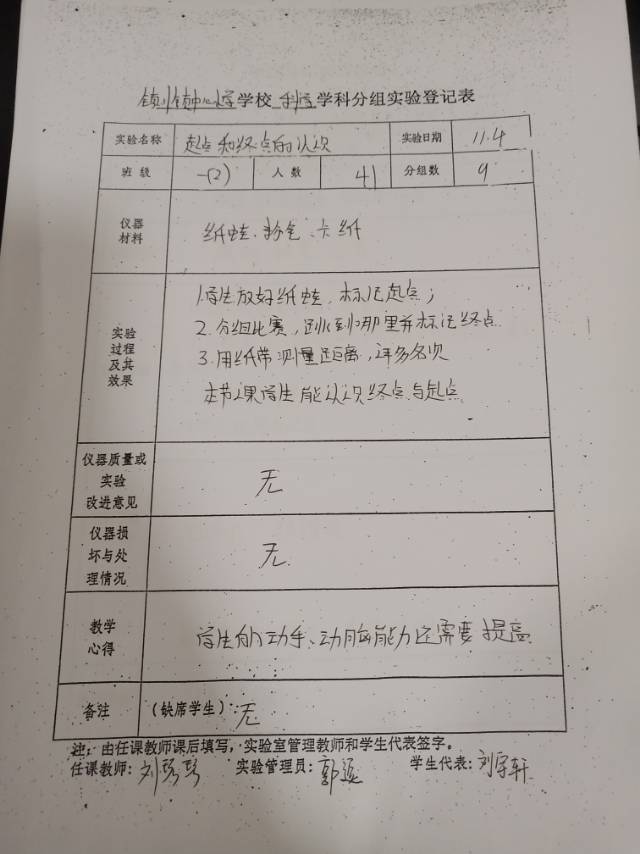 镇川镇中心小学学校 科学学科分组实验登记表
实验名称 起点和终点的认识 实验日期 11.4
班级 一(2) 人数 41 分组数 9
仪器材料 纸蛙、粉笔、卡纸
实验过程及其效果
1.学生放好纸蛙,标记起点;
2.分组比赛,跳到哪里并标记终点
3.用纸带测量距离,评多名次
本节课学生能认识终点与起点
仪器质量或实验改进意见 无
仪器损坏与处理情况 无.
教学心得 学生的动手、动脑能力还需要提高.
备注 (缺席学生):无
注:由任课教师课后填写,实验室管理教师和学生代表签字。
任课教师:刘琴琴 实验管理员:郭 学生代表:刘宇轩